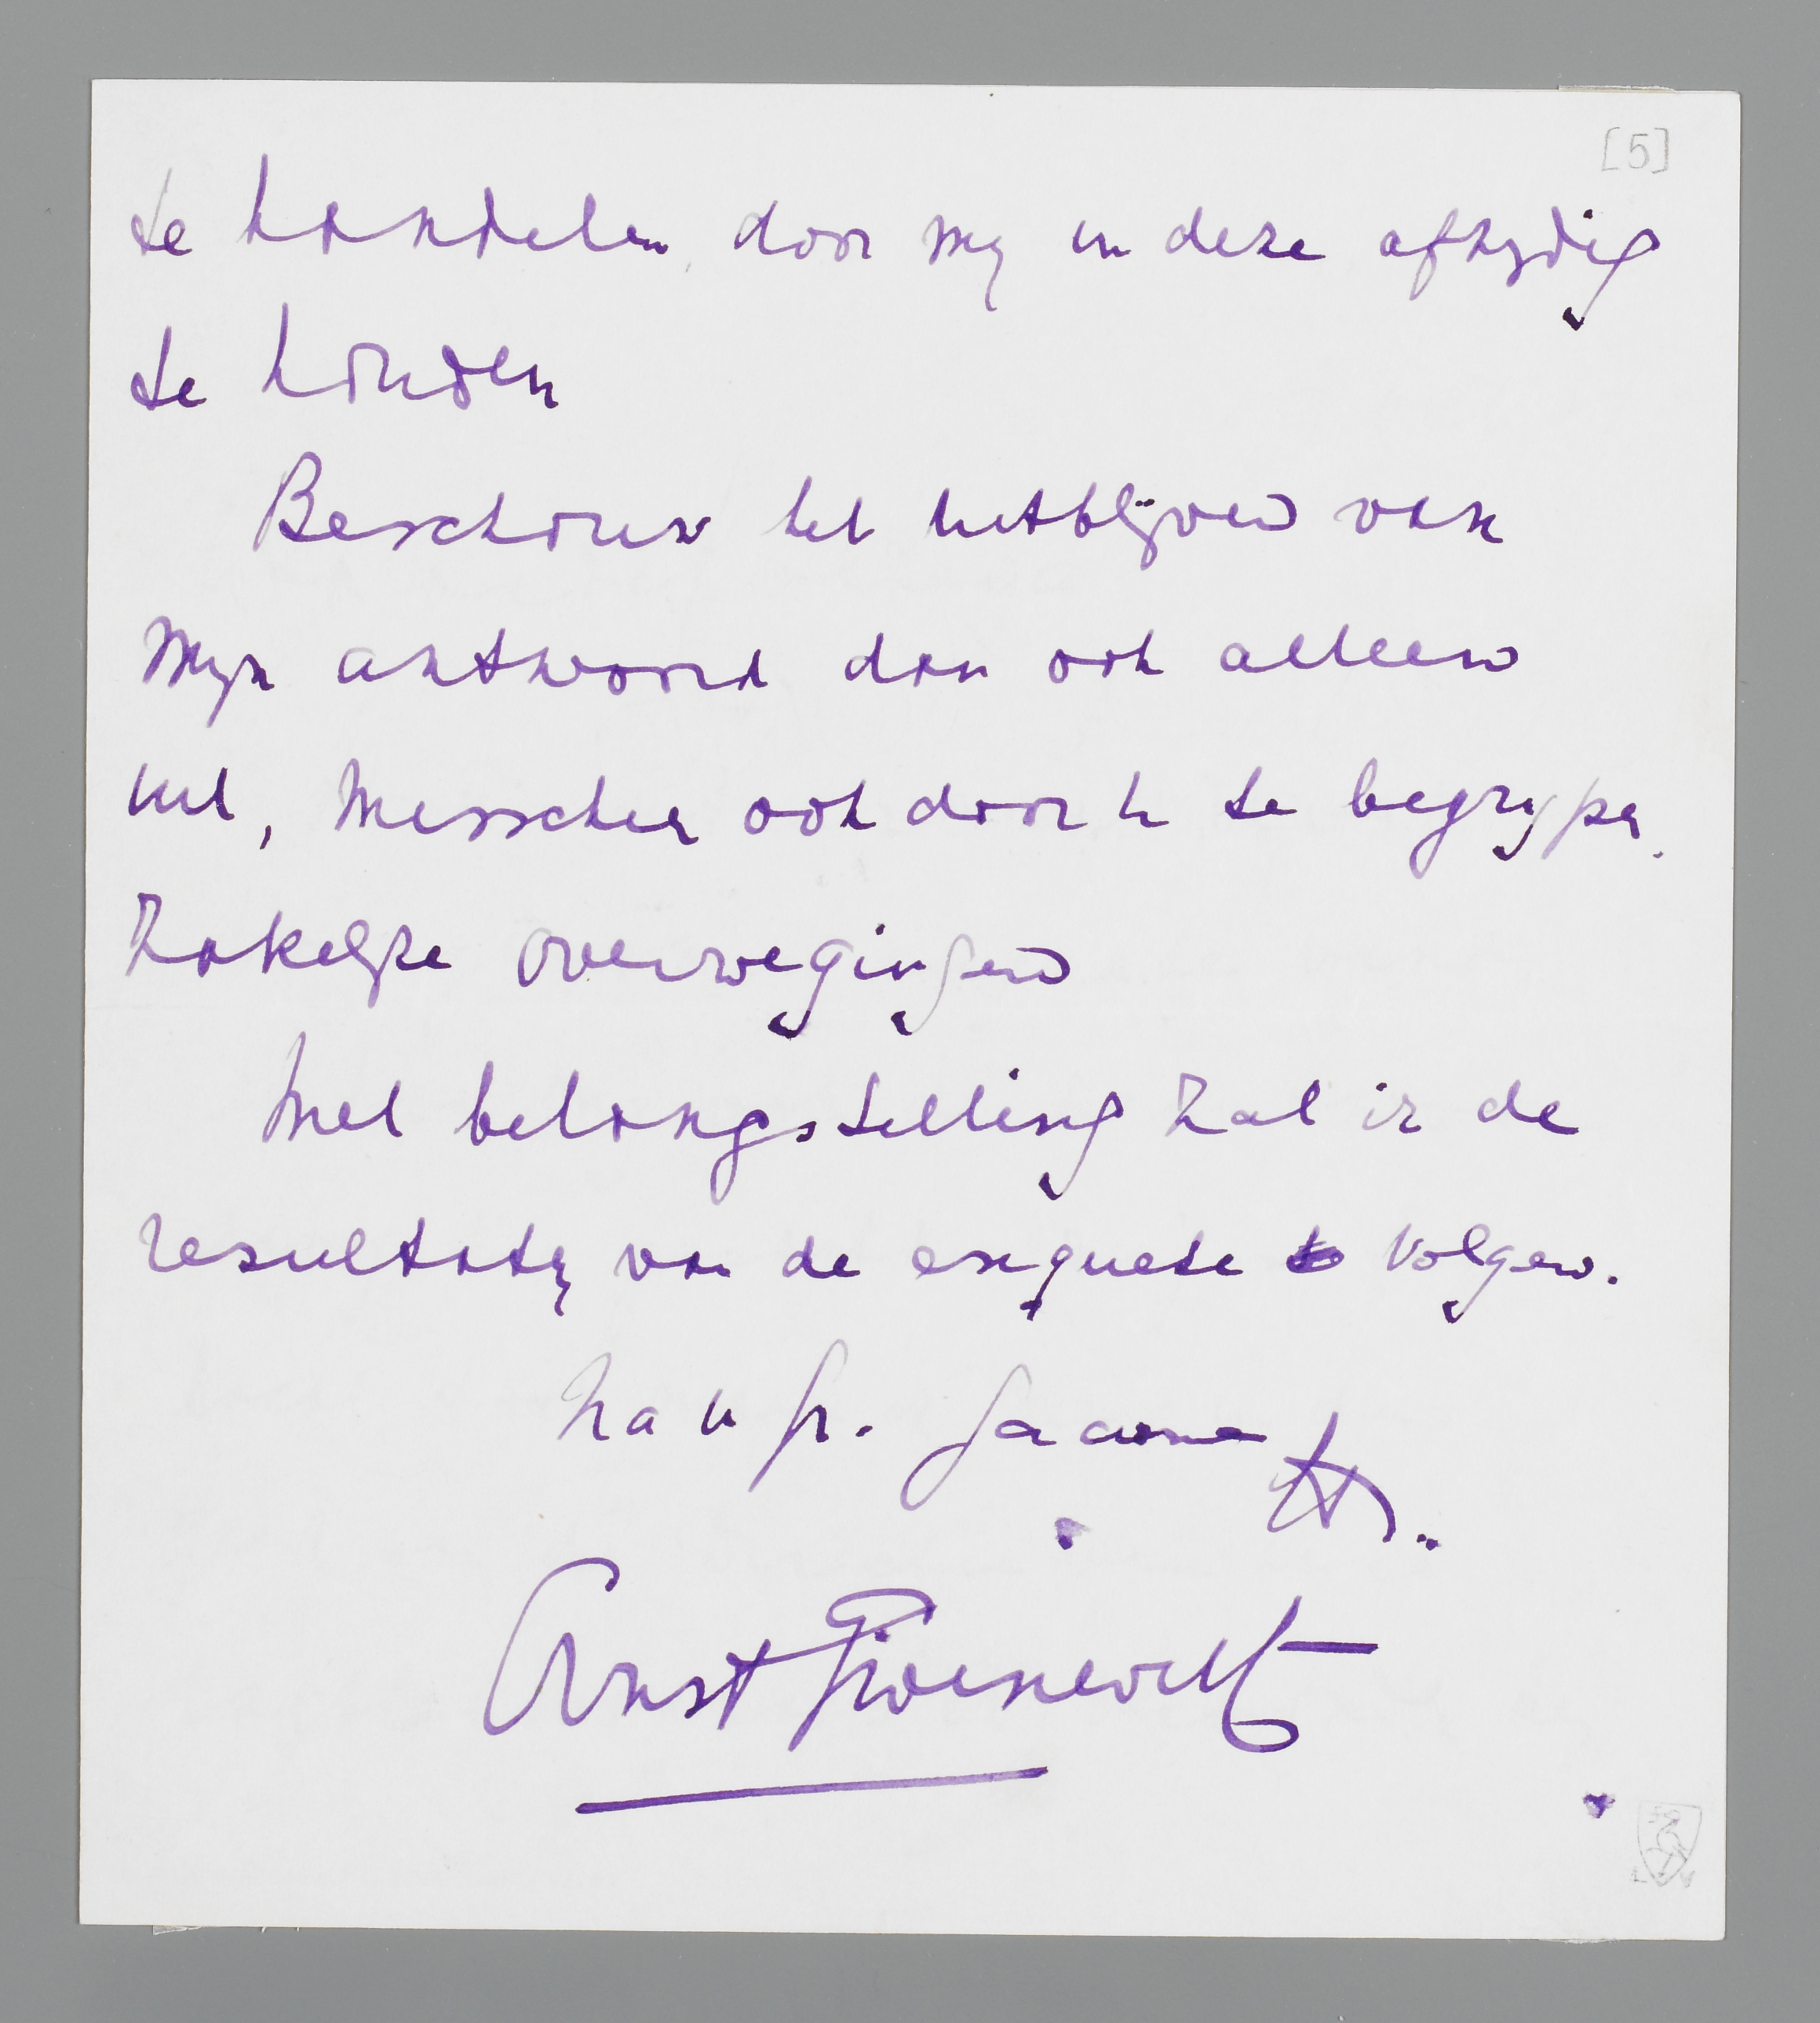 [5]
te handelen, door mij in deze afzydig
te houden
Beschouw het uitblijven van
mijn antwoord dan ook alleen
uit, misschien ook door U te begrijpen.
zakelijke overwegingen
Met belangstelling zal ik de
resultaten van de enquete volgen.
Na u
Ernst Groenevelt